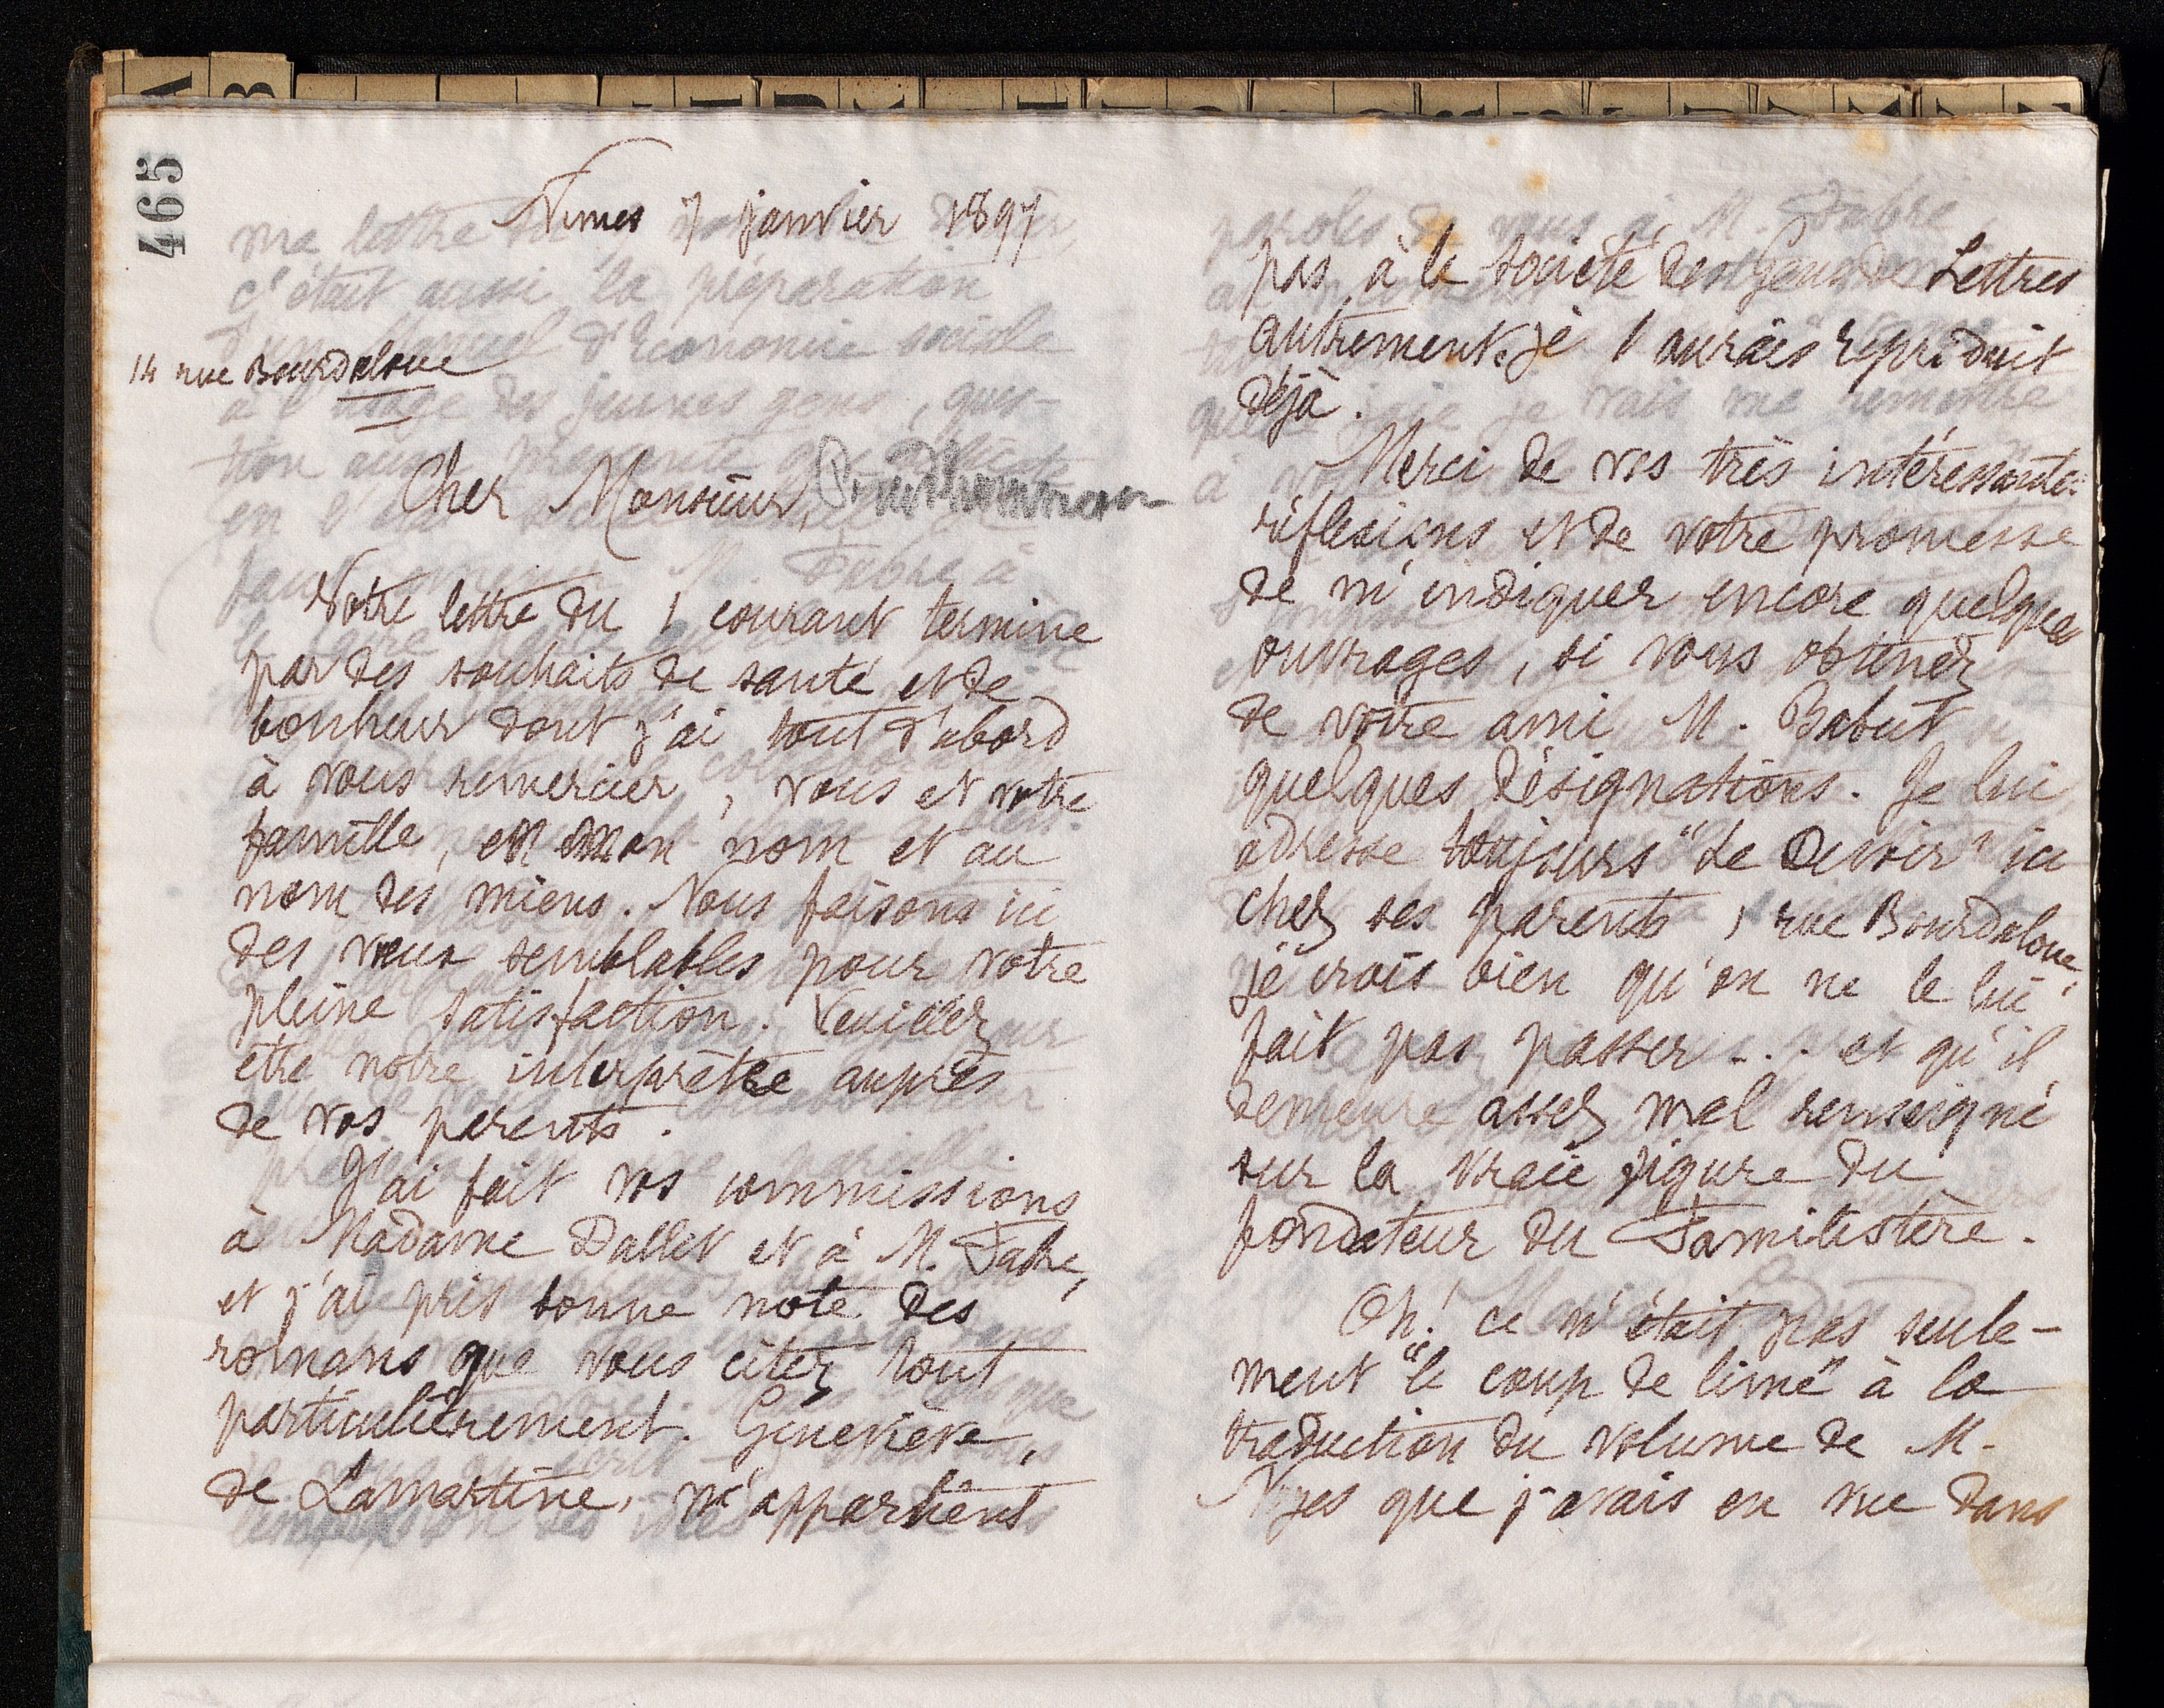 465
Nimes 7 janvier 1897
14 rue Bourdaloue
Cher Monsieur, Prudhommeaux
Votre lettre du 1 courant termine
par des souhaits de santé et de
bonheur dont j'ai tout d'abord
à vous remercier, vous et votre
famille, en mon nom et au
nom des miens. Nous faisons ici
des vœux semblables pour votre
pleine satisfaction. Veuillez
être notre interprète auprès
de vos parents.
J'ai fait vos commissions
à Madame Dallet et à M. Fabre,
et j'ai pris bonne note des
romans que vous citez tout
particulièrement. Geneviève,
de Lamartine, n'appartient
pas à la Société des Gens de Lettres
autrement je l'aurais reproduit
déjà.
Merci de vos très intéressantes
réflexions et de votre promesse
de m'indiquer encore quelques
ouvrages, si vous obtenez
de votre ami M. Babut
quelques désignations. Je lui
adresse toujours "Le Devoir" ici
chez ses parents, rue Bourdaloue;
je crois bien qu'on ne le lui
fait pas passer... et qu'il
demeure assez mal renseigné
sur la vraie figure du
fondateur du Familistère.
Oh! ce n'était pas seule-
ment "le coup de lime" à la
traduction du volume de M.
Noyes que j'avais en vue dans